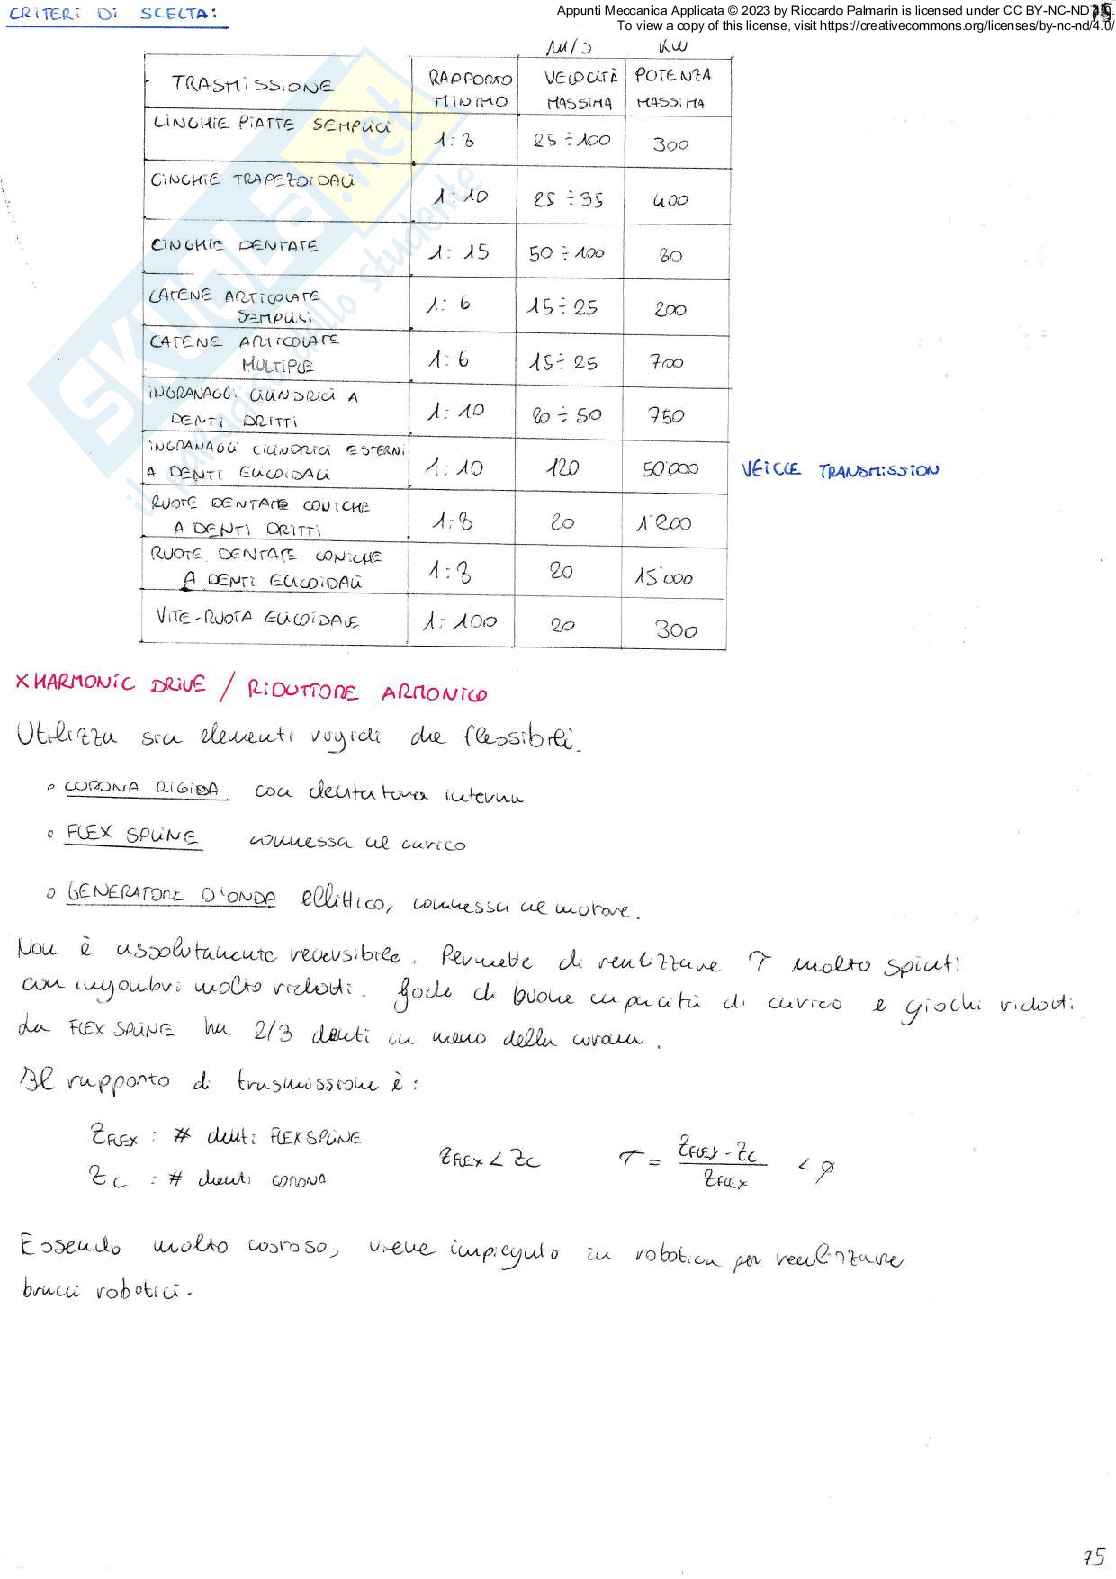 CRITERI DI SCELTA:
Appunti Meccanica Applicata © 2023 by Riccardo Palmarin is licensed under CC BY-NC-ND
To view a copy of this license, visit https://creativecommons.org/licenses/by-nc-nd/4.0/
M/S KW
TRASMISSIONE RAPPORTO MINIMO VELOCITÀ MASSIMA POTENZA MASSIMA
CINGHIE PIATTE SEMPLICI 1:8 25 ÷ 100 300
CINGHIE TRAPEZOIDALI 1:10 25 ÷ 35 400
CINGHIE DENTATE 1:15 50 ÷ 100 80
CATENE ARTICOLATE SEMPLICI 1:6 15 ÷ 25 200
CATENE ARTICOLATE MULTIPLE 1:6 15 ÷ 25 700
INGRANAGGI CILINDRICI A DENTI DRITTI 1:10 20 ÷ 50 750
INGRANAGGI CILINDRICI ESTERNI A DENTI ELICOIDALI 1:10 120 50'000 VEICLE TRANSMISSION
RUOTE DENTATE CONICHE A DENTI DRITTI 1:8 20 1'200
RUOTE DENTATE CONICHE A DENTI ELICOIDALI 1:8 20 15'000
VITE-RUOTA ELICOIDALE 1:100 20 300
SKUOLA.net
il portale dello studente
X HARMONIC DRIVE / RIDUTTORE ARMONICO
Utilizza sia elementi rigidi che flessibili.
° CORONA RIGIDA con dentatura interna
° FLEX SPLINE connessa al carico
° GENERATORE D'ONDE ellittico, connesso al motore.
Non è assolutamente reversibile. Permette di realizzare τ molto spinti
con ingombri molto ridotti. Gode di buone capacità di carico e giochi ridotti.
La FLEX SPLINE ha 2/3 denti in meno della corona.
Il rapporto di trasmissione è:
Z_FLEX : # denti FLEXSPLINE
Z_C : # denti CORONA
Z_FLEX < Z_C τ = (Z_FLEX - Z_C) / Z_FLEX < 0
Essendo molto costoso, viene impiegato in robotica per realizzare
bracci robotici.
75